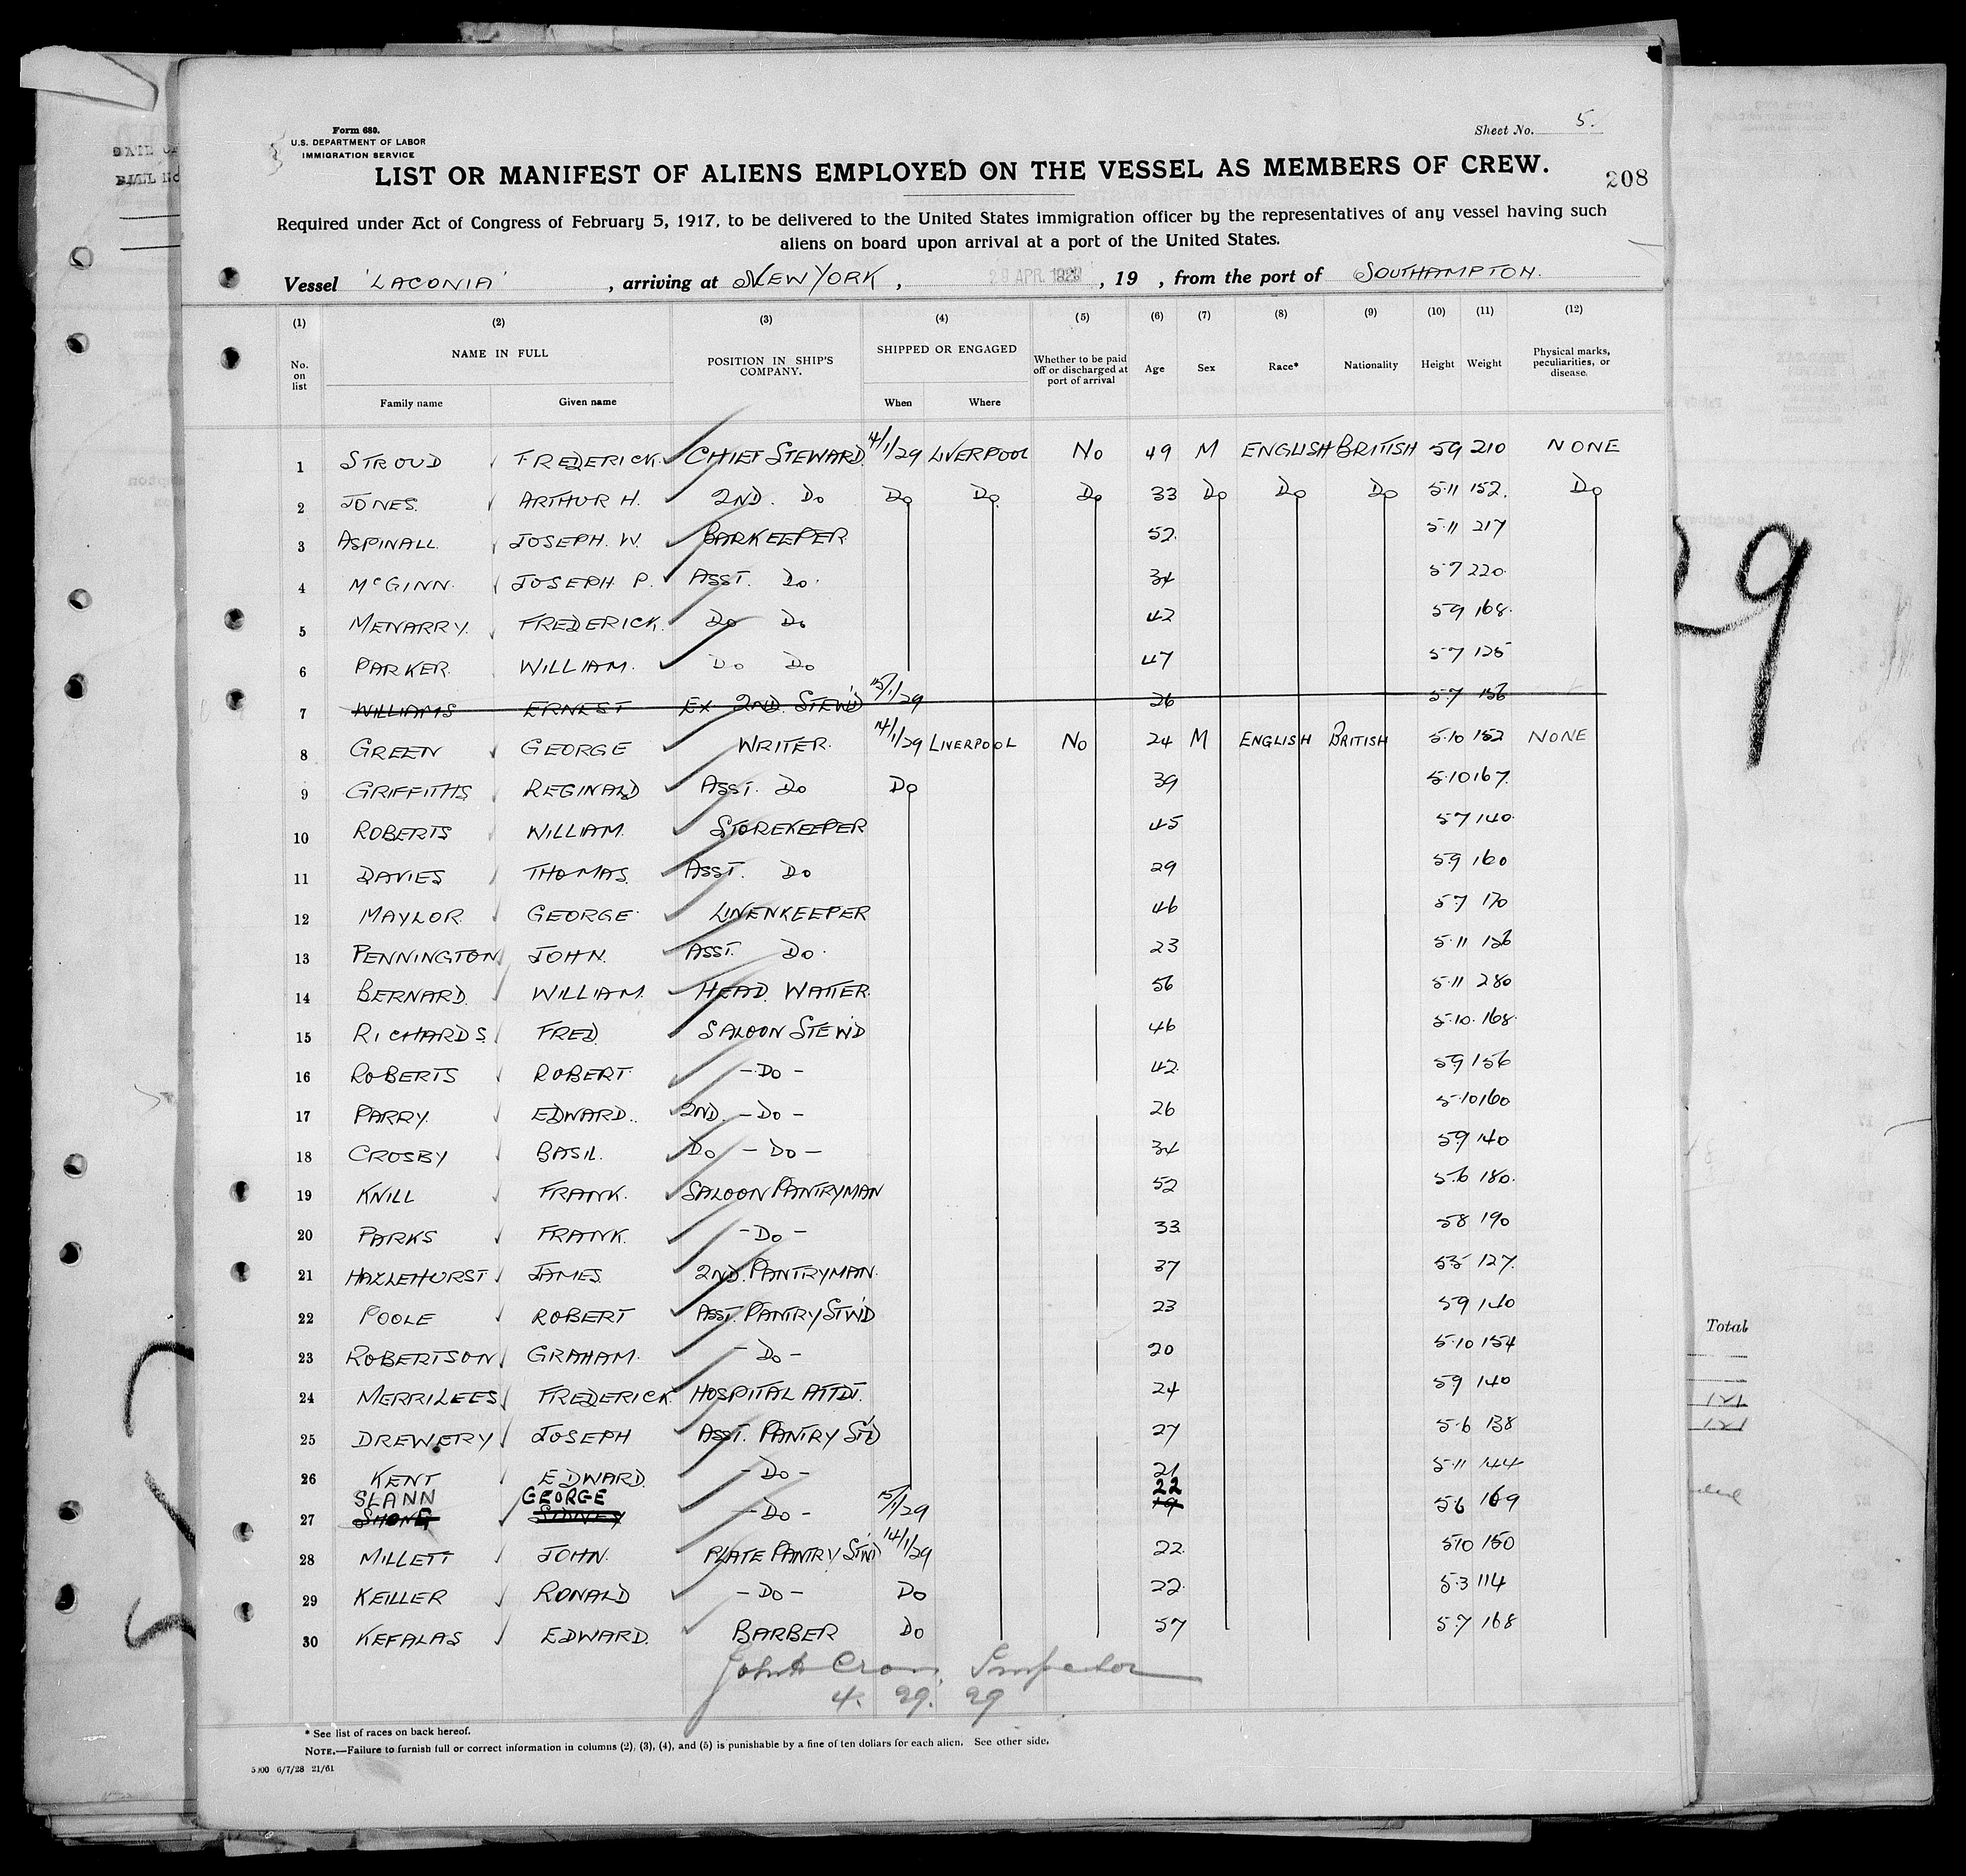 Form 680.
U.S. DEPARTMENT OF LABOR
IMMIGRATION SERVICE
Sheet No. 5.
LIST OR MANIFEST OF ALIENS EMPLOYED ON THE VESSEL AS MEMBERS OF CREW.
208
Required under Act of Congress of February 5, 1917, to be delivered to the United States immigration officer by the representatives of any vessel having such
aliens on board upon arrival at a port of the United States.
Vessel 'LACONIA' , arriving at NEW YORK , 29 APR 1929 , 19 , from the port of SOUTHAMPTON.
(1) (2) (3) (4) (5) (6) (7) (8) (9) (10) (11) (12)
No. on list NAME IN FULL POSITION IN SHIP'S COMPANY. SHIPPED OR ENGAGED Whether to be paid off or discharged at port of arrival Age Sex Race* Nationality Height Weight Physical marks, peculiarities, or disease.
Family name Given name When Where
1 STROUD FREDERICK. CHIEF STEWARD. 14/1/29 LIVERPOOL No 49 M ENGLISH BRITISH 59 210 NONE
2 JONES. ARTHUR H. 2ND. Do Do Do. Do 33 Do Do Do 5.11 152. Do
3 ASPINALL. JOSEPH. W. BARKEEPER. 52. 5.11 217
4 McGINN. JOSEPH P. ASST. Do. 34 57 220.
5 MENARRY. FREDERICK. Do Do 42 59 168.
6 PARKER. WILLIAM. Do Do 47 57 125
7 WILLIAMS ERNEST EX 2ND. STEW'D 15/1/29 26 57 156
8 GREEN GEORGE WRITER. 14/1/29 LIVERPOOL No 24 M ENGLISH BRITISH 5.10 152 NONE
9 GRIFFITHS REGINALD ASST. Do Do 39 5.10 167.
10 ROBERTS WILLIAM. STOREKEEPER 45 57 140.
11 DAVIES THOMAS. ASST. Do 29 59 160
12 MAYLOR GEORGE. LINENKEEPER 46 57 170
13 PENNINGTON JOHN. ASST. Do. 23 5.11 156
14 BERNARD. WILLIAM. HEAD WAITER. 56 5.11 280
15 RICHARDS. FRED. SALOON STEW'D 46 5.10. 168.
16 ROBERTS ROBERT. - Do - 42. 59 156
17 PARRY. EDWARD.. 2ND. - Do - 26 5.10 160
18 CROSBY BASIL. Do - Do - 34 59 140
19 KNILL FRANK. SALOON PANTRYMAN 52 5.6 180.
20 PARKS FRANK. - Do - 33. 58 190
21 HAZLEHURST JAMES. 2ND. PANTRYMAN. 37 55 127.
22 POOLE ROBERT ASST. PANTRY STW'D 23 59 140
23 ROBERTSON GRAHAM. - Do - 20 5.10 154
24 MERRILEES FREDERICK HOSPITAL ATTDT. 24 59 140
25 DREWERY JOSEPH ASST. PANTRY ST'D 27 5.6 138
26 KENT EDWARD. - Do - 21 5.11 144
SLANN GEORGE 22
27 SIDNEY - Do - 15/1/29 19 56 169
28 MILLETT JOHN. PLATE PANTRY STW'D 14/1/29 22. 5.10 150
29 KEILLER RONALD - Do - Do 22. 5.3 114
30 KEFALAS EDWARD. BARBER Do 57 5.7 168
Inspector
4. 29. 29
* See list of races on back hereof.
NOTE.—Failure to furnish full or correct information in columns (2), (3), (4), and (5) is punishable by a fine of ten dollars for each alien. See other side.
5000 6/7/28 21/61
29
Total
121
121